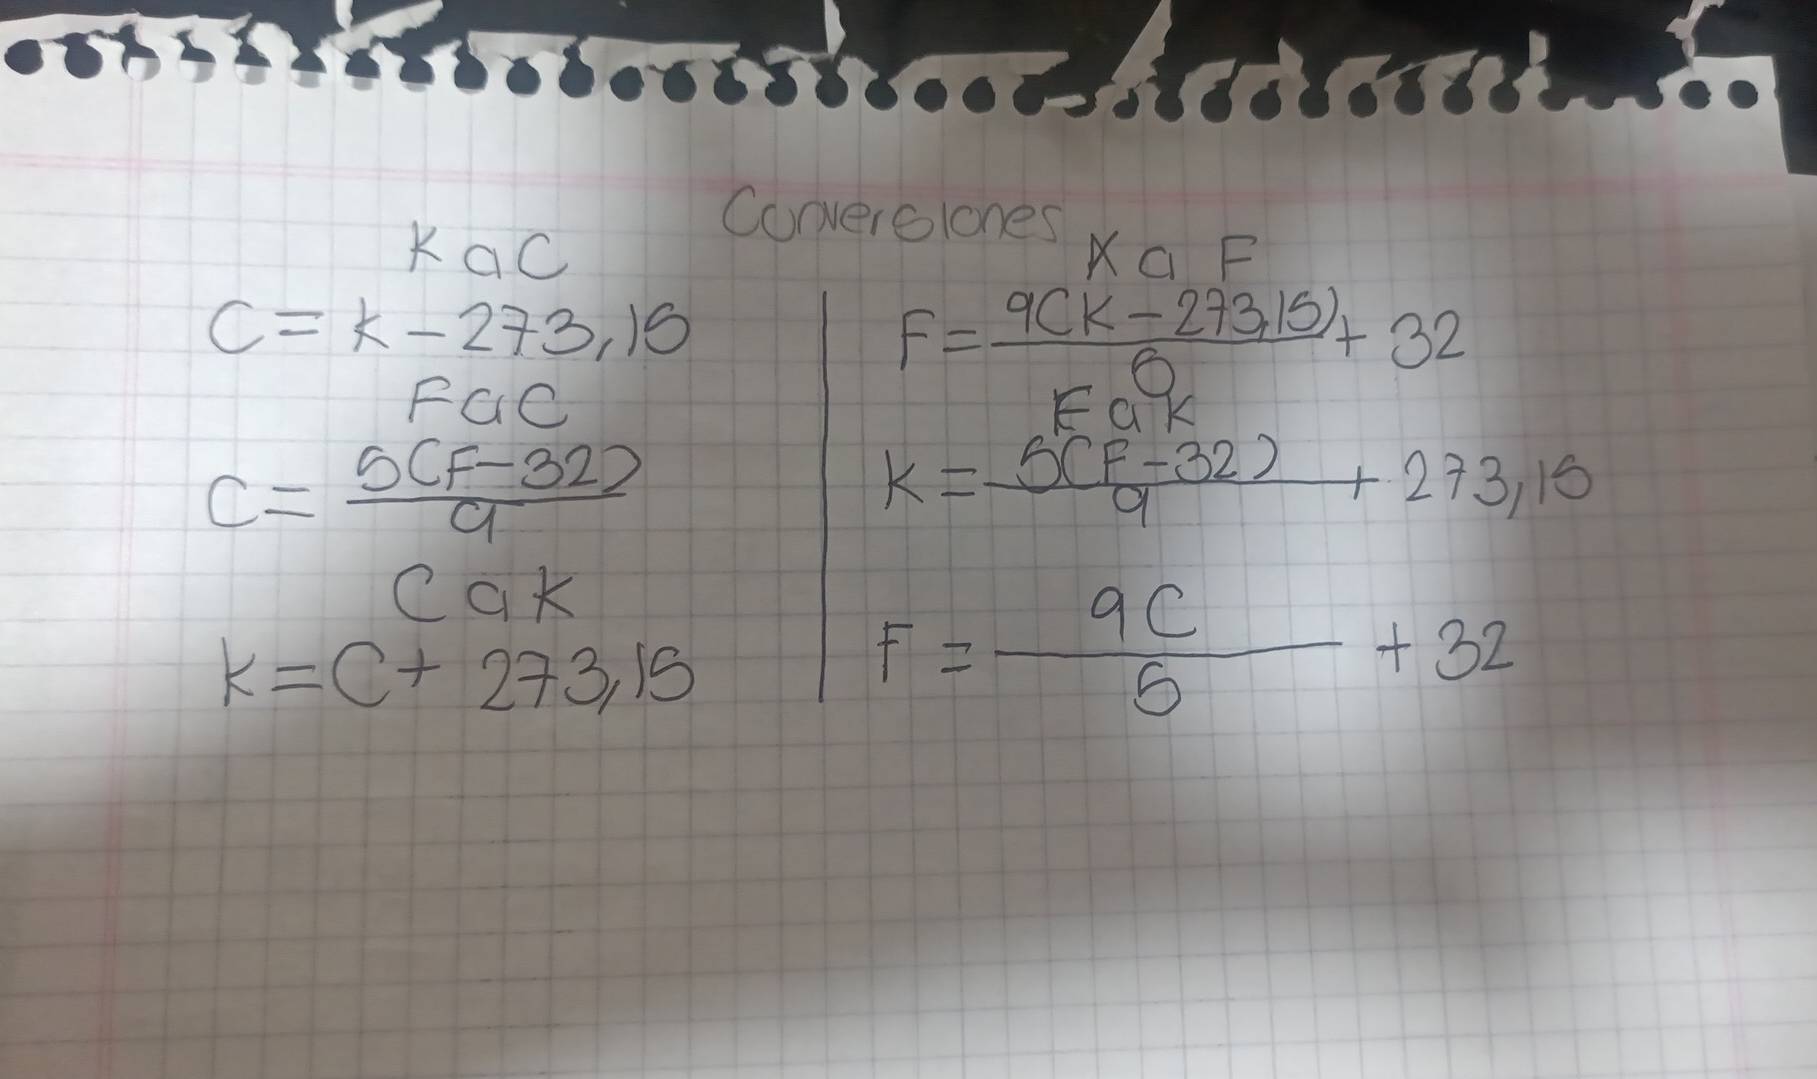 Conversiones
K a C
C = K - 273,15
F a C
C = 5(F-32)
9
C a K
K = C + 273,15
K a F
F = 9(K - 273,15) + 32
5
F a K
K = 5(F-32) + 273,15
9
F = 9C + 32
5